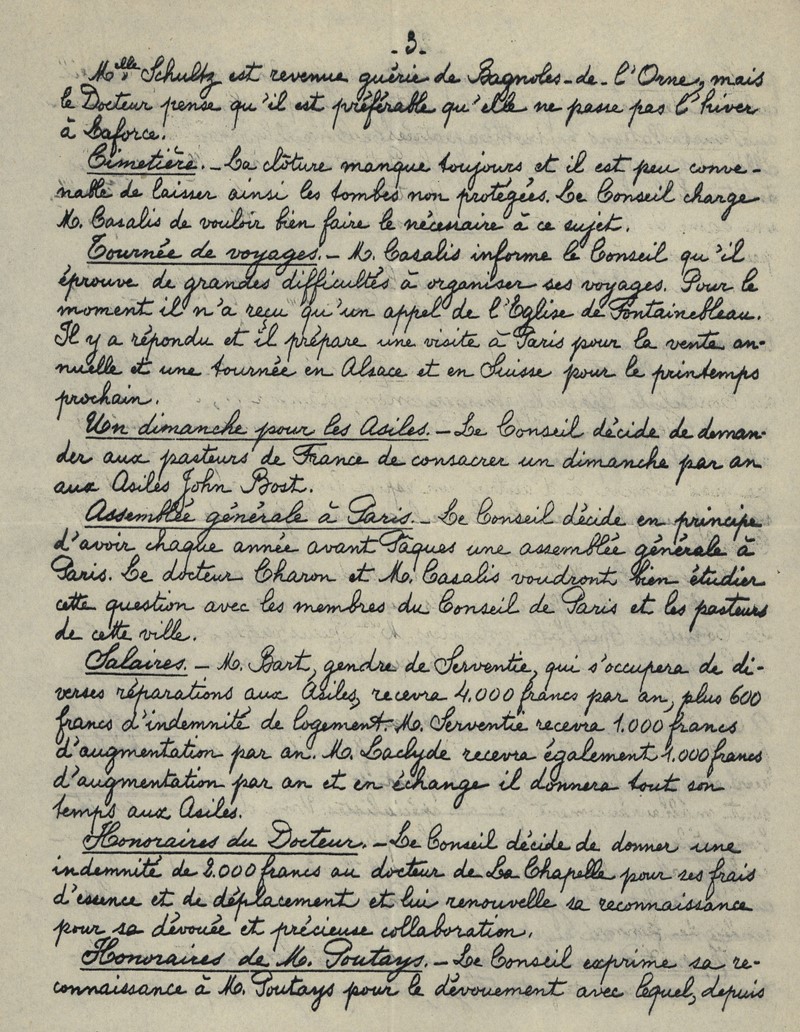 - 3 -
Mlle Schultz est revenue guérie de Bagnoles-de-l'Orne, mais
le Docteur pense qu'il est préférable qu'elle ne passe pas l'hiver
à Laforce.
Cimetière. - La clôture manque toujours et il est peu conve-
nable de laisser ainsi les tombes non protégées. Le Conseil charge
M. Casalis de vouloir bien faire le nécessaire à ce sujet.
Tournée de voyages. - M. Casalis informe le Conseil qu'il
éprouve de grandes difficultés à organiser ses voyages. Pour le
moment il n'a reçu qu'un appel de l'Eglise de Fontainebleau.
Il y a répondu et il prépare une visite à Paris pour la vente an-
nuelle et une tournée en Alsace et en Suisse pour le printemps
prochain.
Un dimanche pour les Asiles. - Le Conseil décide de deman-
der aux pasteurs de France de consacrer un dimanche par an
aux Asiles John Bost.
Assemblée générale à Paris. - Le Conseil décide en principe
d'avoir chaque année avant Pâques une assemblée générale à
Paris. Le docteur Charon et M. Casalis voudront bien étudier
cette question avec les membres du Conseil de Paris et les pasteurs
de cette ville.
Salaires. - M. Bart, gendre de Serventie, qui s'occupera de di-
verses réparations aux Asiles, recevra 4.000 francs par an, plus 600
francs d'indemnité de logement. M. Serventie recevra 1.000 francs
d'augmentation par an. M. Laclyde recevra également 1.000 francs
d'augmentation par an et en échange il donnera tout son
temps aux Asiles.
Honoraires du Docteur. - Le Conseil décide de donner une
indemnité de 2.000 francs au docteur de La Chapelle pour ses frais
d'essence et de déplacement et lui renouvelle sa reconnaissance
pour sa dévouée et précieuse collaboration.
Honoraires de M. Poutays. - Le Conseil exprime sa re-
connaissance à M. Poutays pour le dévouement avec lequel, depuis